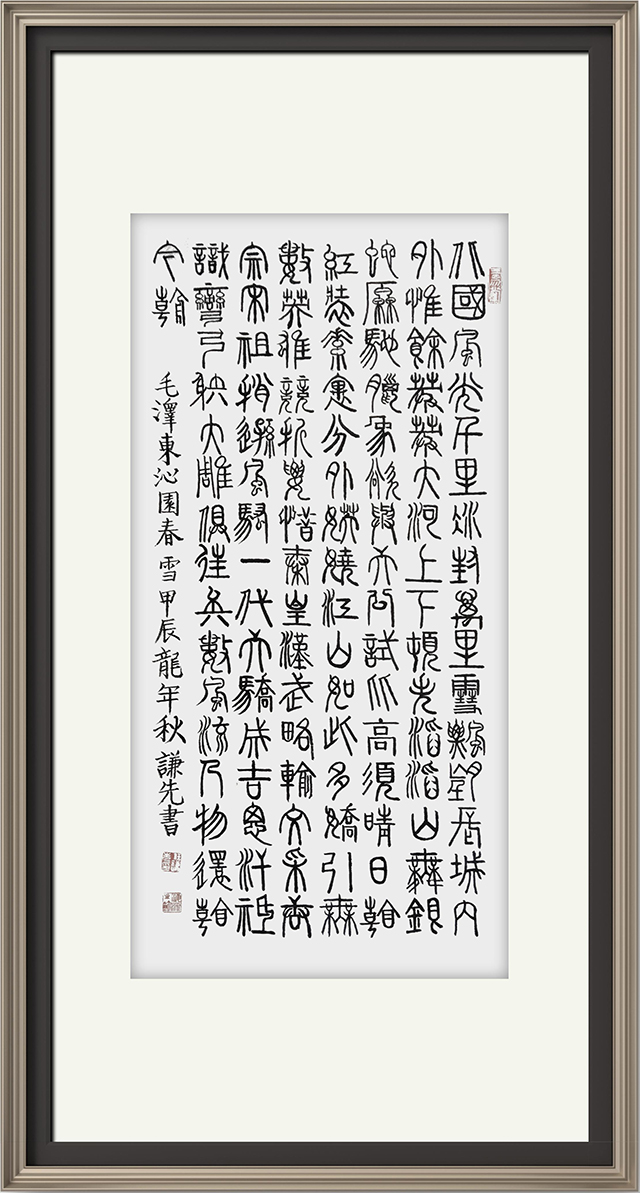 北國風光千里冰封萬里雪飄望長城內
外惟餘莽莽大河上下頓失滔滔山舞銀
蛇原馳蠟象欲與天公試比高須晴日看
紅裝素裹分外妖嬈江山如此多嬌引無
數英雄競折腰惜秦皇漢武略輸文采唐
宗宋祖稍遜風騷一代天驕成吉思汗祇
識彎弓射大雕俱往矣數風流人物還看
今朝 毛澤東沁園春雪甲辰龍年秋謙先書